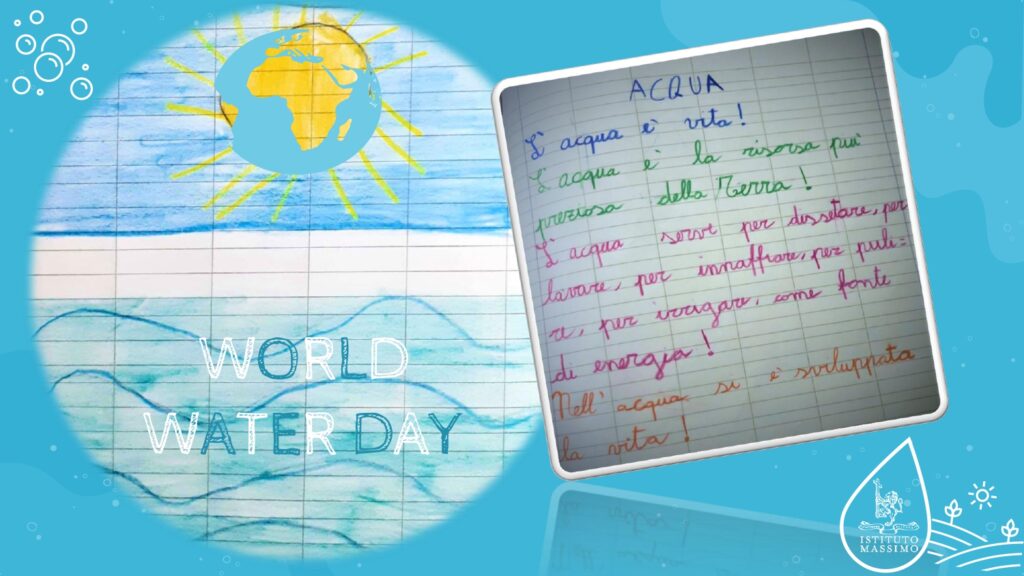 WORLD
WATER DAY
ACQUA
L'acqua è vita!
L'acqua è la risorsa più
preziosa della Terra!
L'acqua serve per dissetare, per
lavare, per innaffiare, per puli=
re, per irrigare, come fonte
di energia!
Nell'acqua si è sviluppata
la vita!
ISTITUTO
MASSIMO